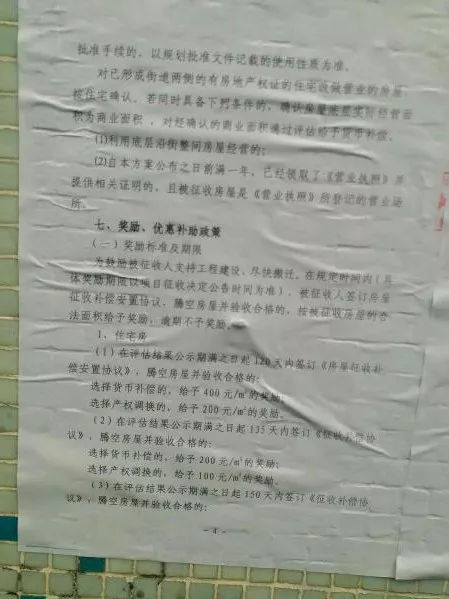 批准手续的，以规划批准文件记载的使用性质为准。
对已形成街道两侧的有房地产权证的住宅改做营业的房屋
按住宅确认。若同时具备下列条件的，确认房屋底层实际经营面
积为商业面积，对经确认的商业面积通过评估给予货币补偿。
(1)利用底层沿街整间房屋经营的；
(2)自本方案公布之日前满一年，已经领取了《营业执照》并
提供相关证明的，且被征收房屋是《营业执照》所登记的营业场
所。
七、奖励、优惠补助政策
（一）奖励标准及期限
为鼓励被征收人支持工程建设、尽快搬迁，在规定时间内（具
体奖励期限以项目征收决定公告时间为准），被征收人签订房屋
征收补偿安置协议，腾空房屋并验收合格的，按被征收房屋的合
法面积给予奖励，逾期不予奖励。
1、住宅房
(1)在评估结果公示期满之日起120天内签订《房屋征收补
偿安置协议》，腾空房屋并验收合格的：
选择货币补偿的，给予400元/m²的奖励；
选择产权调换的，给予200元/m²的奖励。
(2)在评估结果公示期满之日起135天内签订《征收补偿协
议》，腾空房屋并验收合格的：
选择货币补偿的，给予200元/m²的奖励；
选择产权调换的，给予100元/m²的奖励。
(3)在评估结果公示期满之日起150天内签订《征收补偿协
议》，腾空房屋并验收合格的：
- 4 -